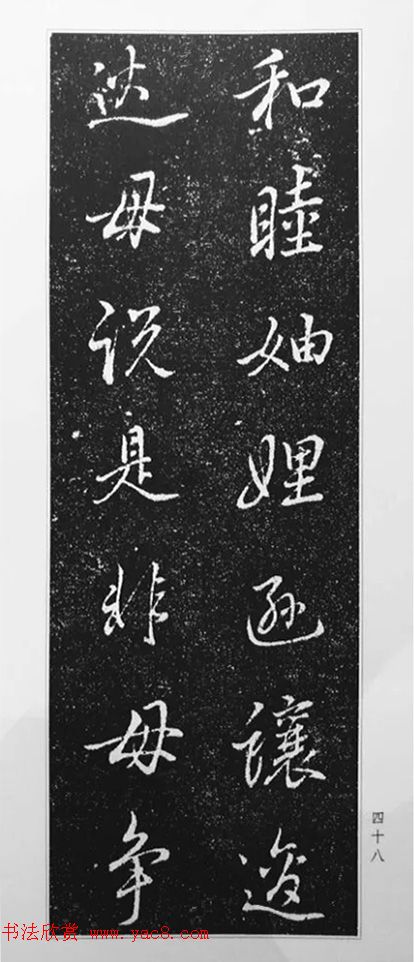 和睦妯娌遜讓逡
毋説是非毋争
四十八
书法欣赏 www.yac8.com